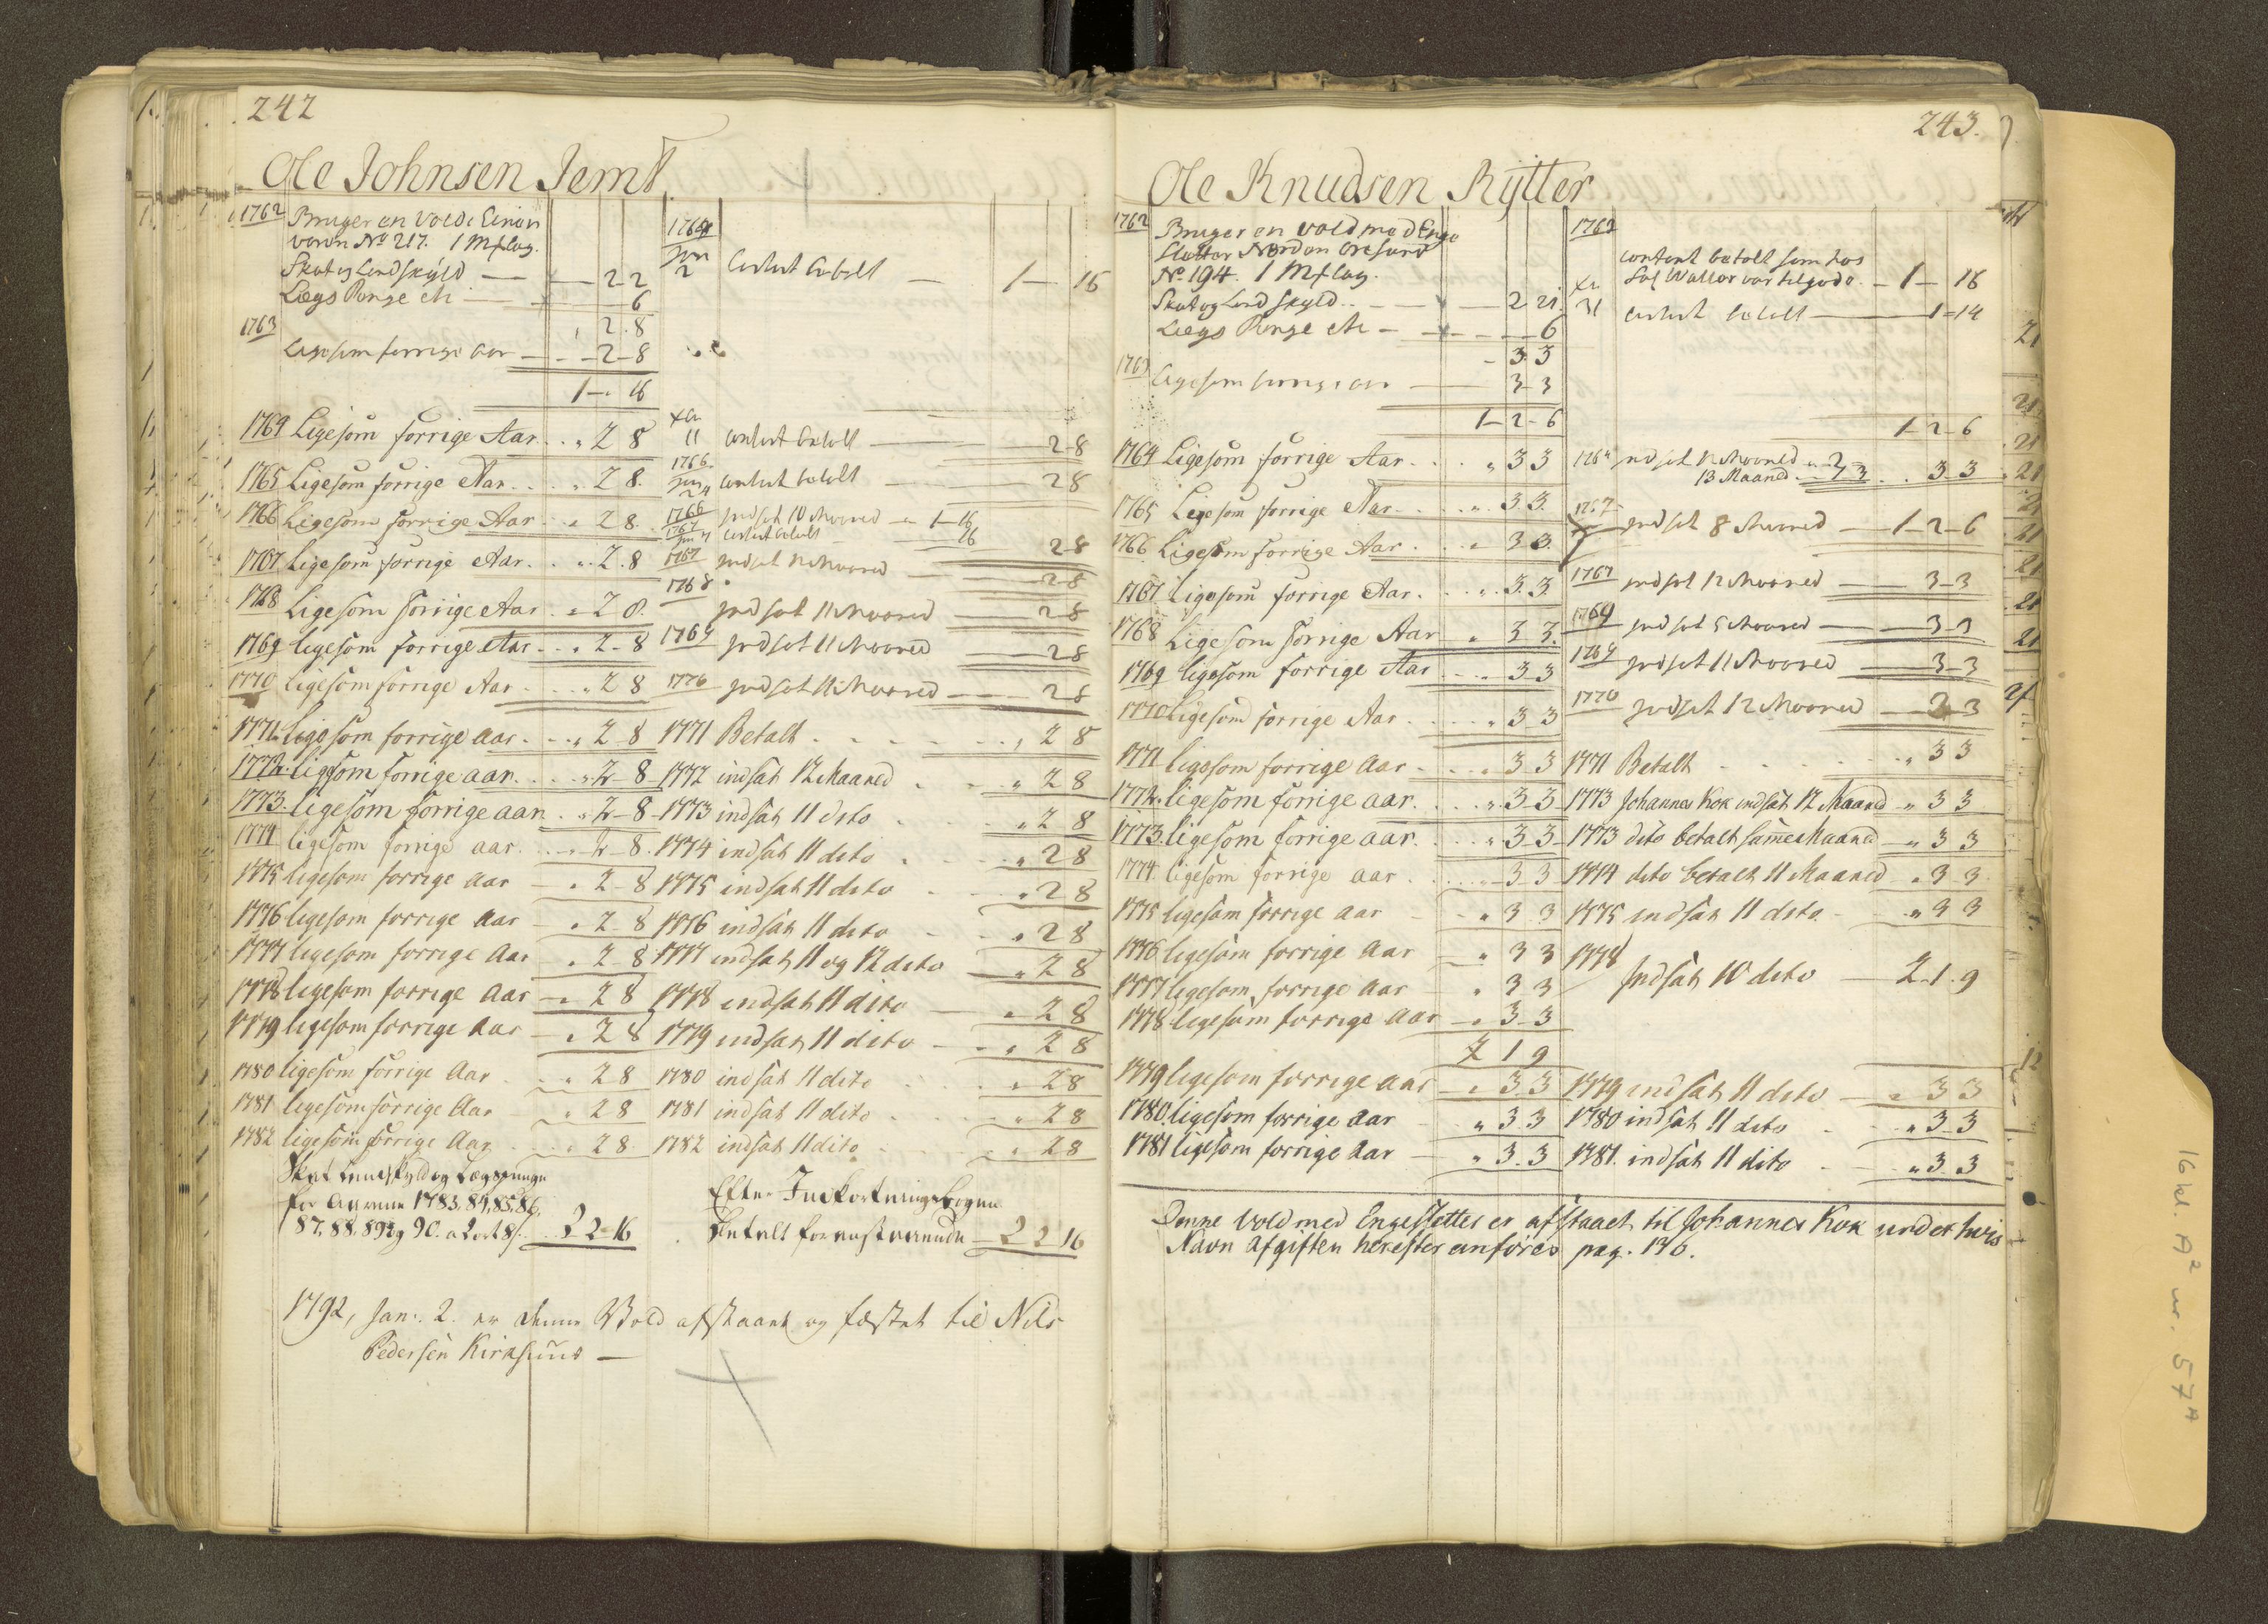 242
Ole Johnsen Jemt
1762 Bruger en Vold
No 217. 1 Mæslag.
Skat og Landskyld — 2 2
Lægs Penge etc — 6
" 2. 8
1763
Ligesom forrige Aar — 2 - 8
1 - " 16
1764
Jan 2 Contant betalt — 1 - 16
1764 Ligesom forrige Aar . . " 2 8
11 contant betalt — 2 8
1765 Ligesom forrige Aar . . " 2 8.
1766 Jan 24 contant betalt — 2 8
1766 Ligesom forrige Aar . . " 2 8.
1766 Indsat 10 Maaned — 1 - 16
1767 Contant betalt
2 8
1767 Ligesom forrige Aar . . " 2. 8
1767 Indsat 12 Maaned — 2 8
1768 Ligesom forrige Aar . . " 2 8.
1768 Indsat 11 Maaned — 2 8
1769 ligesom forrige Aar . . " 2 - 8
1769 Indsat 11 Maaned — 2 8
1770 ligesom forrige Aar . . " 2 8
1770 Indsat 11 Maaned — 2 8
1771. ligesom forrige aar . . " 2 - 8
1771 Betalt . . . " 2 8
1772. ligesom forrige aar . . " 2 - 8
1772 indsat 12 Maaned . " 2 8
1773. ligesom forrige aar . . " 2 - 8
1773 indsat 11 dito . " 2 8
1774 ligesom forrige aar . . " 2 - 8.
1774 indsat 11 dito . " 2 8
1775 ligesom forrige aar — " 2 - 8
1775 indsat 11 dito . " 2 8
1776 ligesom forrige aar — " 2 - 8
1776 indsat 11 dito . " 2 8
1777 ligesom forrige Aar — " 2 - 8
1777 indsat 11 og 12 dito — " 2 8
1778 ligesom forrige Aar — " 2 8
1778 indsat 11 dito — " 2 8
1779 ligesom forrige Aar — " 2 8
1779 indsat 11 dito — " 2 8
1780 ligesom forrige Aar . . " 2 8
1780 indsat 11 dito . " 2 8
1781 ligesom forrige Aar . . " 2 8
1781 indsat 11 dito . " 2 8
1782 ligesom forrige Aar . . " 2 8.
1782 indsat 11 dito . " 2 8
Skat Landskyld og Lægspenge
for Aarene 1783, 84, 85, 86,
87, 88, 89 og 90. a 2 ort 8 s. . . 2 2 - 16
Efter Inkorteringsbogen
betalt for — 2 2 16
1792, Jan: 2. er denne Vold afstaaet og fæstet til Nils
Pedersen Kirksund —
243.
Ole Knudsen Rytter
1762 Bruger en Vold med Enge
Sletter Norden Oresund
No 194. 1 Mæslag.
Skat og Landskyld . . — 2 21.
Lægs Penge etc — 6
- 3 3
1763 Ligesom forrige aar — 3 - 3
1 - 2 - 6
1762
contant betalt som hos
var tilgode — 1 - 16
31 contant betalt — 1 - 14
1 - 2 - 6
1764 Ligesom forrige Aar . . " 3 3
1764 Indsat 12 Maaned
13 Maaned . . 3 - 3
1765 Ligesom forrige Aar . . " 3 3.
1766 Ligesom forrige Aar . . " 3 3.
1767 Indsat 8 Maaned — 1 - 2 - 6
1767 Ligesom forrige Aar . . " 3. 3.
1767 Indsat 12 Maaned — 3 - 3
1768 Ligesom forrige Aar . . " 3 3.
1769 Indsat 5 Maaned — 3 - 3
1769 ligesom forrige Aar . . " 3 3
1769 Indsat 11 Maaned — 3 - 3
1770 Ligesom forrige Aar . . " 3 3
1770 Indsat 12 Maaned — 3 - 3
1771 ligesom forrige Aar . . " 3 - 3
1771 Betalt . . . " 3 3
1772. ligesom forrige aar . . " 3 - 3
1773 Johannes Kok indsat 12 Maaned " 3 3
1773. ligesom forrige aar . . " 3 3
1773 dito betalt samme Maaned — " 3 3
1774 ligesom forrige aar . . " 3 - 3
1774 dito betalt 11 Maaned " 3 3
1775 ligesom forrige aar - " 3 3
1775 indsat 11 dito - " 3 3
1776 ligesom forrige Aar — " 3 3
1777 ligesom forrige Aar — " 3 3
1778 ligesom forrige Aar — " 3 - 3
2 1 9
1778
Indsat 10 dito — 2. 1. 9
1779 ligesom forrige Aar — " 3 3
1779 indsat 11 dito — " 3 3
1780. ligesom forrige Aar - " 3 3
1780 indsat 11 dito - " 3 3
1781 ligesom forrige Aar — " 3 - 3
1781. indsat 11 dito - " 3 3
Denne Vold med Engesletter er afstaaet til Johannes Kok under hvis
Navn Afgiften herefter anføres pag. 136.
16 kl. A2 nr. 57A